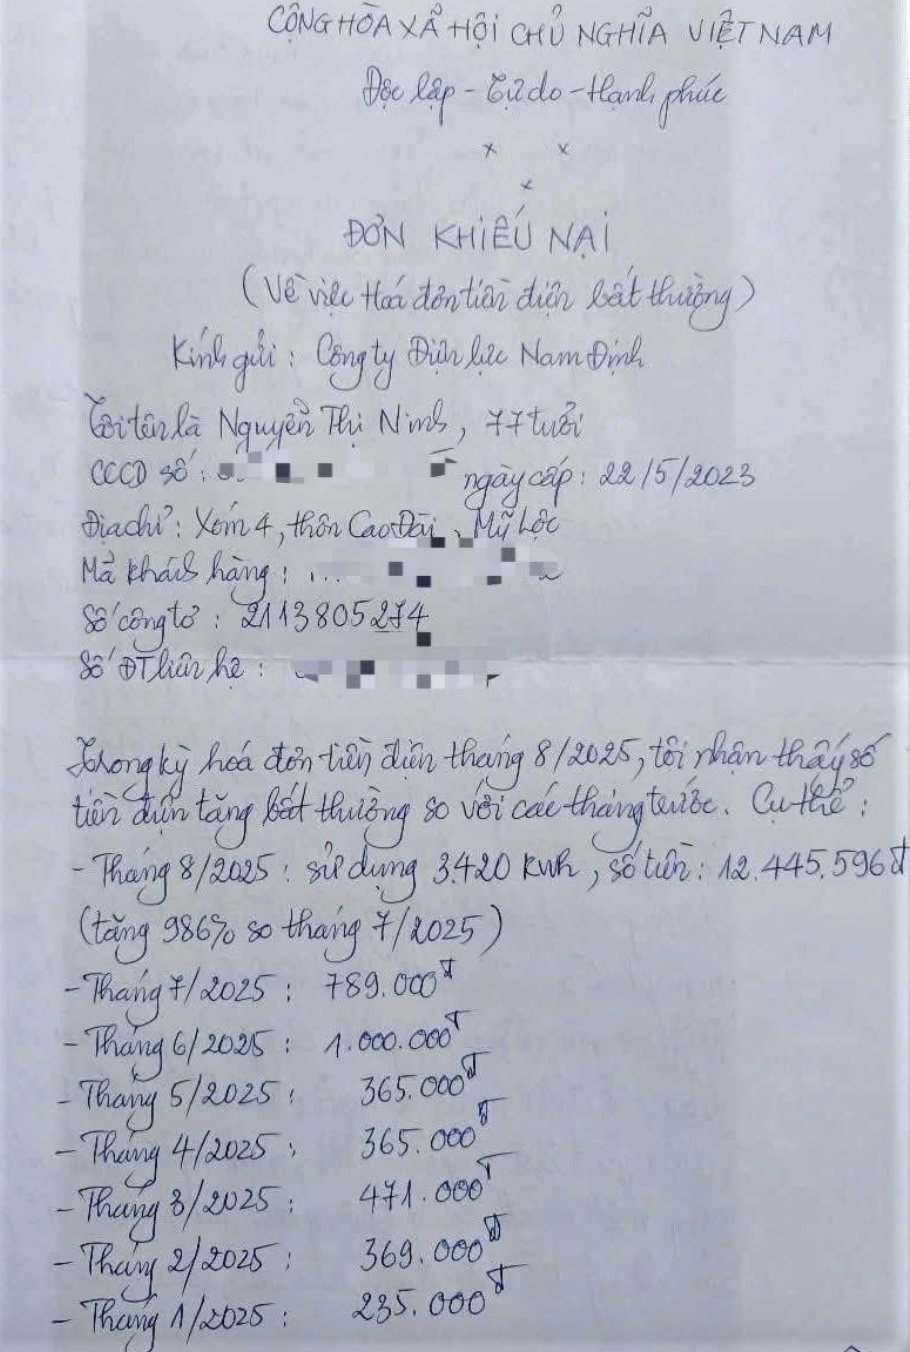 CỘNG HÒA XÃ HỘI CHỦ NGHĨA VIỆT NAM
Độc lập - Tự do - Hạnh phúc
x x
x
ĐƠN KHIẾU NẠI
(Về việc Hoá đơn tiền điện bất thường)
Kính gửi : Công ty Điện lực Nam Định
Tôi tên là Nguyễn Thị Ninh, 77 tuổi
CCCD số : ngày cấp : 22/5/2023
Địa chỉ : Xóm 4, thôn Cao Đài, Mỹ Lộc
Mã khách hàng :
Số công tơ : 2113805274
Số ĐT liên hệ :
Trong kỳ hoá đơn tiền điện tháng 8/2025, tôi nhận thấy số
tiền điện tăng bất thường so với các tháng trước. Cụ thể :
- Tháng 8/2025 : sử dụng 3.420 kwh, số tiền : 12.445.596đ
(tăng 986% so tháng 7/2025)
- Tháng 7/2025 : 789.000đ
- Tháng 6/2025 : 1.000.000đ
- Tháng 5/2025 : 365.000đ
- Tháng 4/2025 : 365.000đ
- Tháng 3/2025 : 471.000đ
- Tháng 2/2025 : 369.000đ
- Tháng 1/2025 : 235.000đ